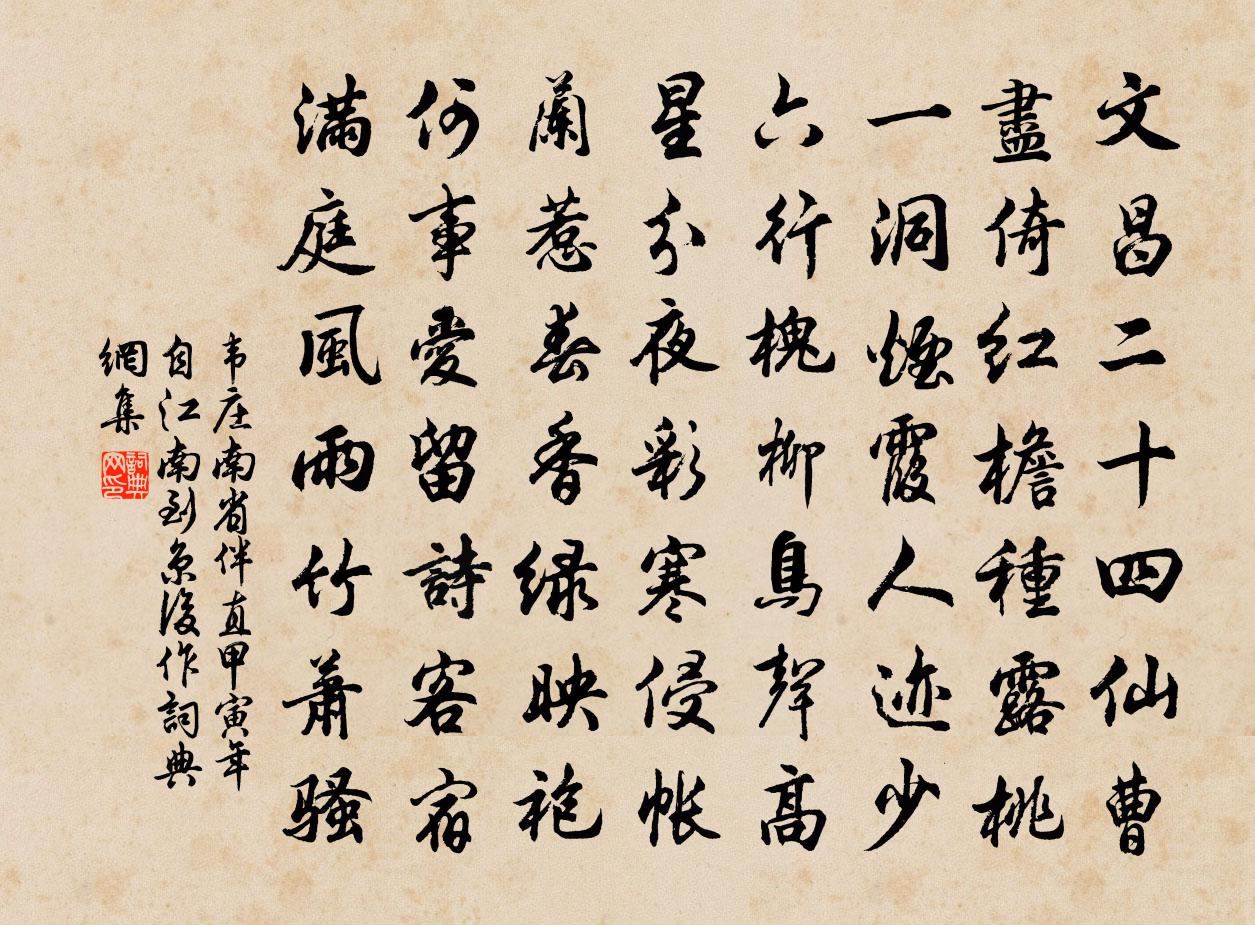 文昌二十四仙曹
盡倚紅檐種露桃
一洞煙霞人迹少
六行槐柳鳥聲高
星分夜彩寒侵帳
蘭惹春香綠映袍
何事愛留詩客宿
滿庭風雨竹蕭騷
韦庄南省伴直甲寅年
自江南到京後作詞典
網集
詞典网印